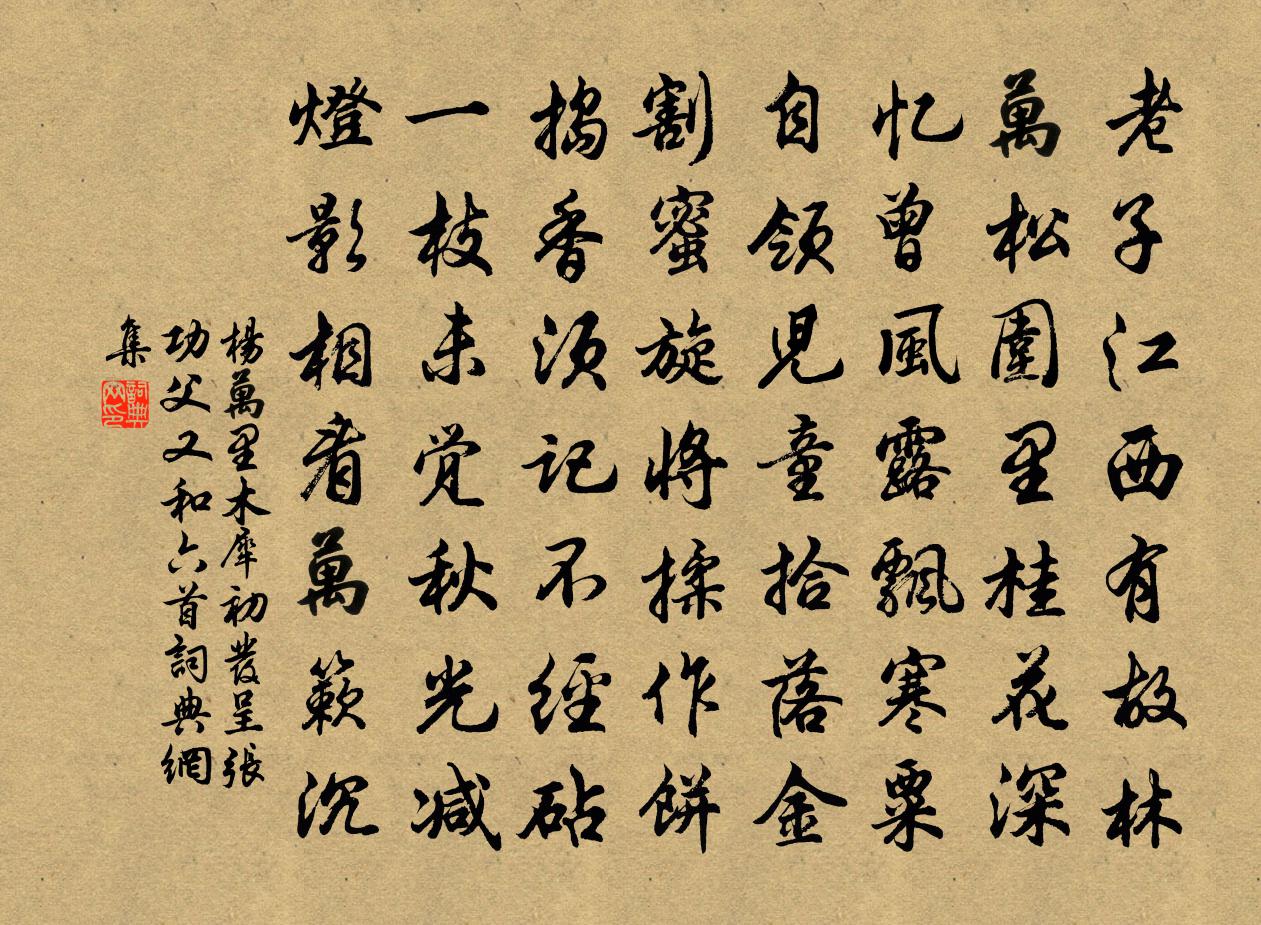 老子江西有故林
萬松圍里桂花深
忆曾風露飄寒粟
自領兒童拾落金
割蜜旋將揉作餅
搗香須記不經砧
一枝未觉秋光减
燈影相看萬籟沉
楊萬里木犀初發呈張
功父又和六首詞典網
集
詞典
网印